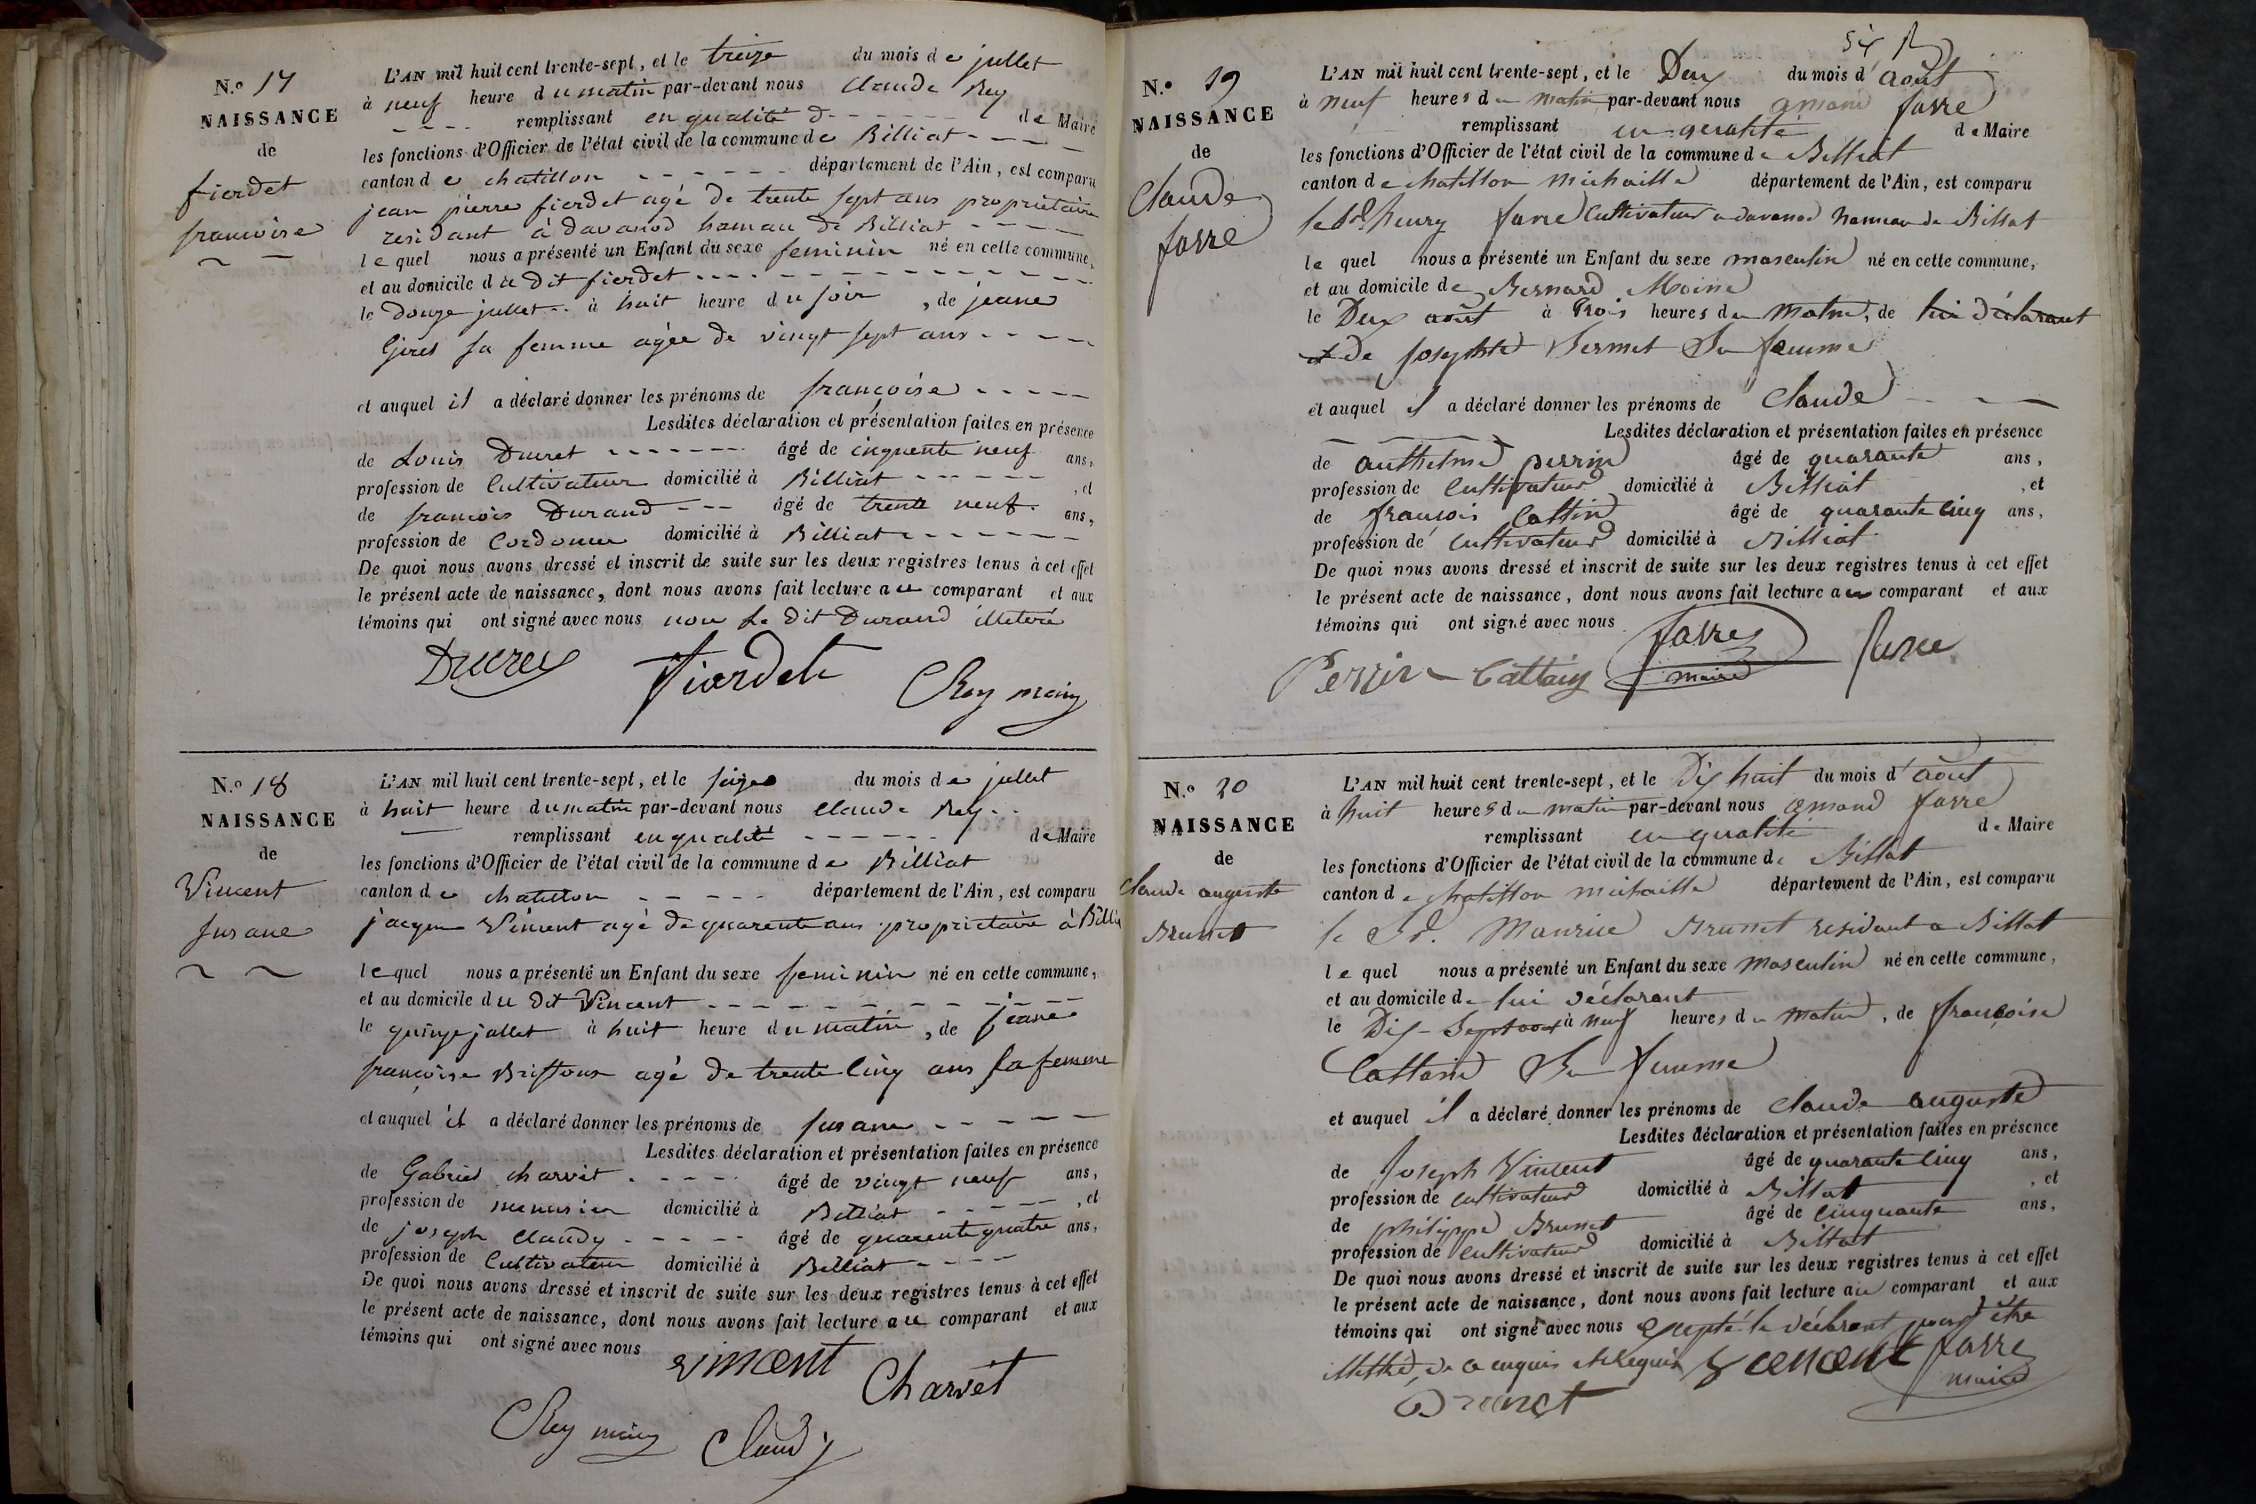 N.o 17
NAISSANCE
de
fierdet
francoise
L'AN mil huit cent trente-sept, et le treize du mois de jullet
à neuf heure du matin par-devant nous claude Rey
remplissant en qualité d de Maire
les fonctions d'Officier de l'état civil de la commune de Billiat
canton de chatillon département de l'Ain, est comparu
jean pierre fierdet agé de trente sept ans propriétaire
residant à davanod hamau de Billiat
lequel nous a présenté un Enfant du sexe feminin né en cette commune,
et au domicile du dit fierdet
le douze jullet à huit heure du soir, de jeane
sa femme agée de vingt sept ans
et auquel il a déclaré donner les prénoms de francoise
Lesdites déclaration et présentation faites en présence
de Louis Ducret âgé de cinquente neuf ans,
profession de Cultivateur domicilié à Billiat, et
de francois Durand âgé de trente neuf ans,
profession de Cordonnier domicilié à Billiat
De quoi nous avons dressé et inscrit de suite sur les deux registres tenus à cet effet
le présent acte de naissance, dont nous avons fait lecture au comparant et aux
témoins qui ont signé avec nous non le dit Durand illeteré
Ducret Fierdet
CRey maire
N.o 18
NAISSANCE
de
Vincent
susane
L'AN mil huit cent trente-sept, et le seize du mois de jullet
à huit heure du matin par-devant nous claude Rey
remplissant en qualité de Maire
les fonctions d'Officier de l'état civil de la commune de Billiat
canton de chatillon département de l'Ain, est comparu
jacque Vincent agé de quarente ans proprietaire à Billia
lequel nous a présenté un Enfant du sexe feminin né en cette commune,
et au domicile du dit Vincent
le quinze jullet à huit heure du matin, de jeane
françoise agé de trente cinq ans sa femme
et auquel il a déclaré donner les prénoms de susane
Lesdites déclaration et présentation faites en présence
de Gabriel charvet âgé de vingt neuf ans,
profession de menusier domicilié à Billiat, et
de joseph claudy âgé de quarente quatre ans,
profession de Cultivateur domicilié à Billiat
De quoi nous avons dressé et inscrit de suite sur les deux registres tenus à cet effet
le présent acte de naissance, dont nous avons fait lecture au comparant et aux
témoins qui ont signé avec nous
vincent Charvet
CRey maire Claudy
54
N.o 19
NAISSANCE
de
Claude
favre
L'AN mil huit cent trente-sept, et le Deux du mois d'août
à neuf heures du matin par-devant nous amand favre
remplissant en qualité de Maire
les fonctions d'Officier de l'état civil de la commune de Billiat
canton de chatillon michaille département de l'Ain, est comparu
le Sr henry favre Cultivateur a davanod hameau de Billat
le quel nous a présenté un Enfant du sexe masculin né en cette commune,
et au domicile de Bernard Moine
le Deux août à trois heures du matin, de lui déclarant
et de josephte Sermet Sa femme
et auquel il a déclaré donner les prénoms de Claude
Lesdites déclaration et présentation faites en présence
de authelme perrin âgé de quarante ans,
profession de cultivateur domicilié à Billiat, et
de françois Cattin âgé de quarante cinq ans,
profession de cultivateur domicilié à Billiat
De quoi nous avons dressé et inscrit de suite sur les deux registres tenus à cet effet
le présent acte de naissance, dont nous avons fait lecture au comparant et aux
témoins qui ont signé avec nous
Perrin Cattain favre maire favre
N.o 20
NAISSANCE
de
Claude auguste
Brunet
L'AN mil huit cent trente-sept, et le Dix huit du mois d'août
à huit heures du matin par-devant nous amand favre
remplissant en qualité de Maire
les fonctions d'Officier de l'état civil de la commune de Billat
canton de chatillon michaille département de l'Ain, est comparu
le Sr. Maurice Brunet residant a Billat
le quel nous a présenté un Enfant du sexe masculin né en cette commune,
et au domicile de lui déclarant
le Dix-Sept août à neuf heures du matin, de françoise
Cattain Sa femme
et auquel il a déclaré donner les prénoms de claude auguste
Lesdites déclaration et présentation faites en présence
de joseph Vincent âgé de quarante cinq ans,
profession de cultivateur domicilié à Billat, et
de philippe Brunet âgé de cinquante ans,
profession de cultivateur domicilié à Billat
De quoi nous avons dressé et inscrit de suite sur les deux registres tenus à cet effet
le présent acte de naissance, dont nous avons fait lecture au comparant et aux
témoins qui ont signé avec nous excepté le déclarant pour être
illettré, de ce enquis et requis vincent favre maire
Brunet